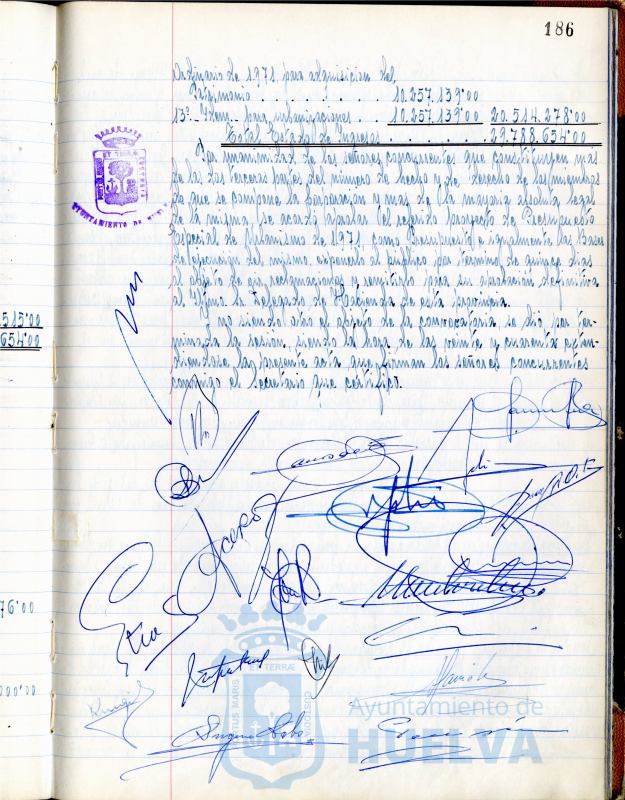 186
Ordinario de 1971, para adquisición del
Patrimonio . . . . . . . . . 10.257.139'00
13º- Idem. para urbanizaciones . 10.257.139'00 20.514.278'00
Total Estado de Ingresos . . . . . . . 29.788.654'00
Por unanimidad de los señores concurrentes que constituyen mas
de las dos terceras partes del número de hecho y de derecho de los miembros
de que se compone la Corporación y mas de la mayoría absoluta legal
de la misma, se acordó aprobar el referido proyecto de Presupuesto
Especial de Urbanismo de 1971, como Presupuesto e igualmente las Bases
de ejecución del mismo, exponerlo al público por término de quince días
al objeto de oir reclamaciones y remitirlo para su aprobación definitiva
al Iltmo. Sr. Delegado de Hacienda de esta provincia.
Y no siendo otro el objeto de la convocatoria, se dió por ter-
minada la sesión, siendo la hora de las veinte y cuarenta exten-
diendose la presente acta que firman los señores concurrentes
conmigo el Secretario que certifico.
AYUNTAMIENTO DE HUELVA
515'00
654'00
76'00
000'00
PORTUS MARIS ET TERRAE CUSTODIA
Ayuntamiento de
HUELVA